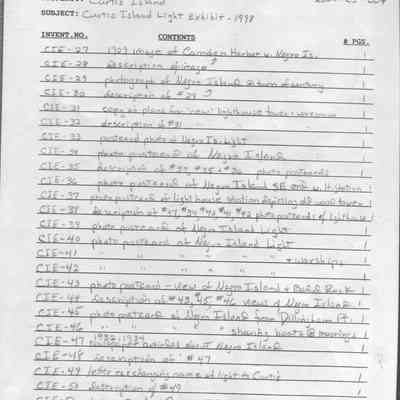 Curtis Island
SUBJECT: Curtis Island Light Exhibit - 1998
INVENT.NO. CONTENTS # PGS.
CIE-27 1909 image of Camden Harbor w. Negro Is. 1
CIE-28 description of image 1
CIE-29 photograph of Negro Island @ turn of century 1
CIE-30 description of #29 1
CIE-31 copy of plans for 'new' lighthouse tower 1
CIE-32 description of #31 1
CIE-33 postcard photo of Negro Is. Light 1
CIE-34 photo postcard of Negro Island 1
CIE-35 description of #33, photo postcards 1
CIE-36 photo postcard of Negro Island SE end w. H. station 1
CIE-37 photo postcard of light house station depicting old wood tower 1
CIE-38 description of photo postcards of lighthouse 1
CIE-39 photo postcard of Negro Island Light 1
CIE-40 photo postcard of Negro Island Light 1
CIE-41 " " " " " & warships 1
CIE-42 " " " " " 1
CIE-43 photo postcard - view of Negro Island & Bald Rock 1
CIE-44 description of #43, 45, #46 views of Negro Island 1
CIE-45 photo postcard of Negro Island from Dillingham Pt. 1
CIE-46 " " " " showing boats @ moorings 1
CIE-47 articles about Negro Island 1
CIE-48 description of #47 1
CIE-49 letter re changing name of light to Curtis 1
CIE-50 description of #49 1